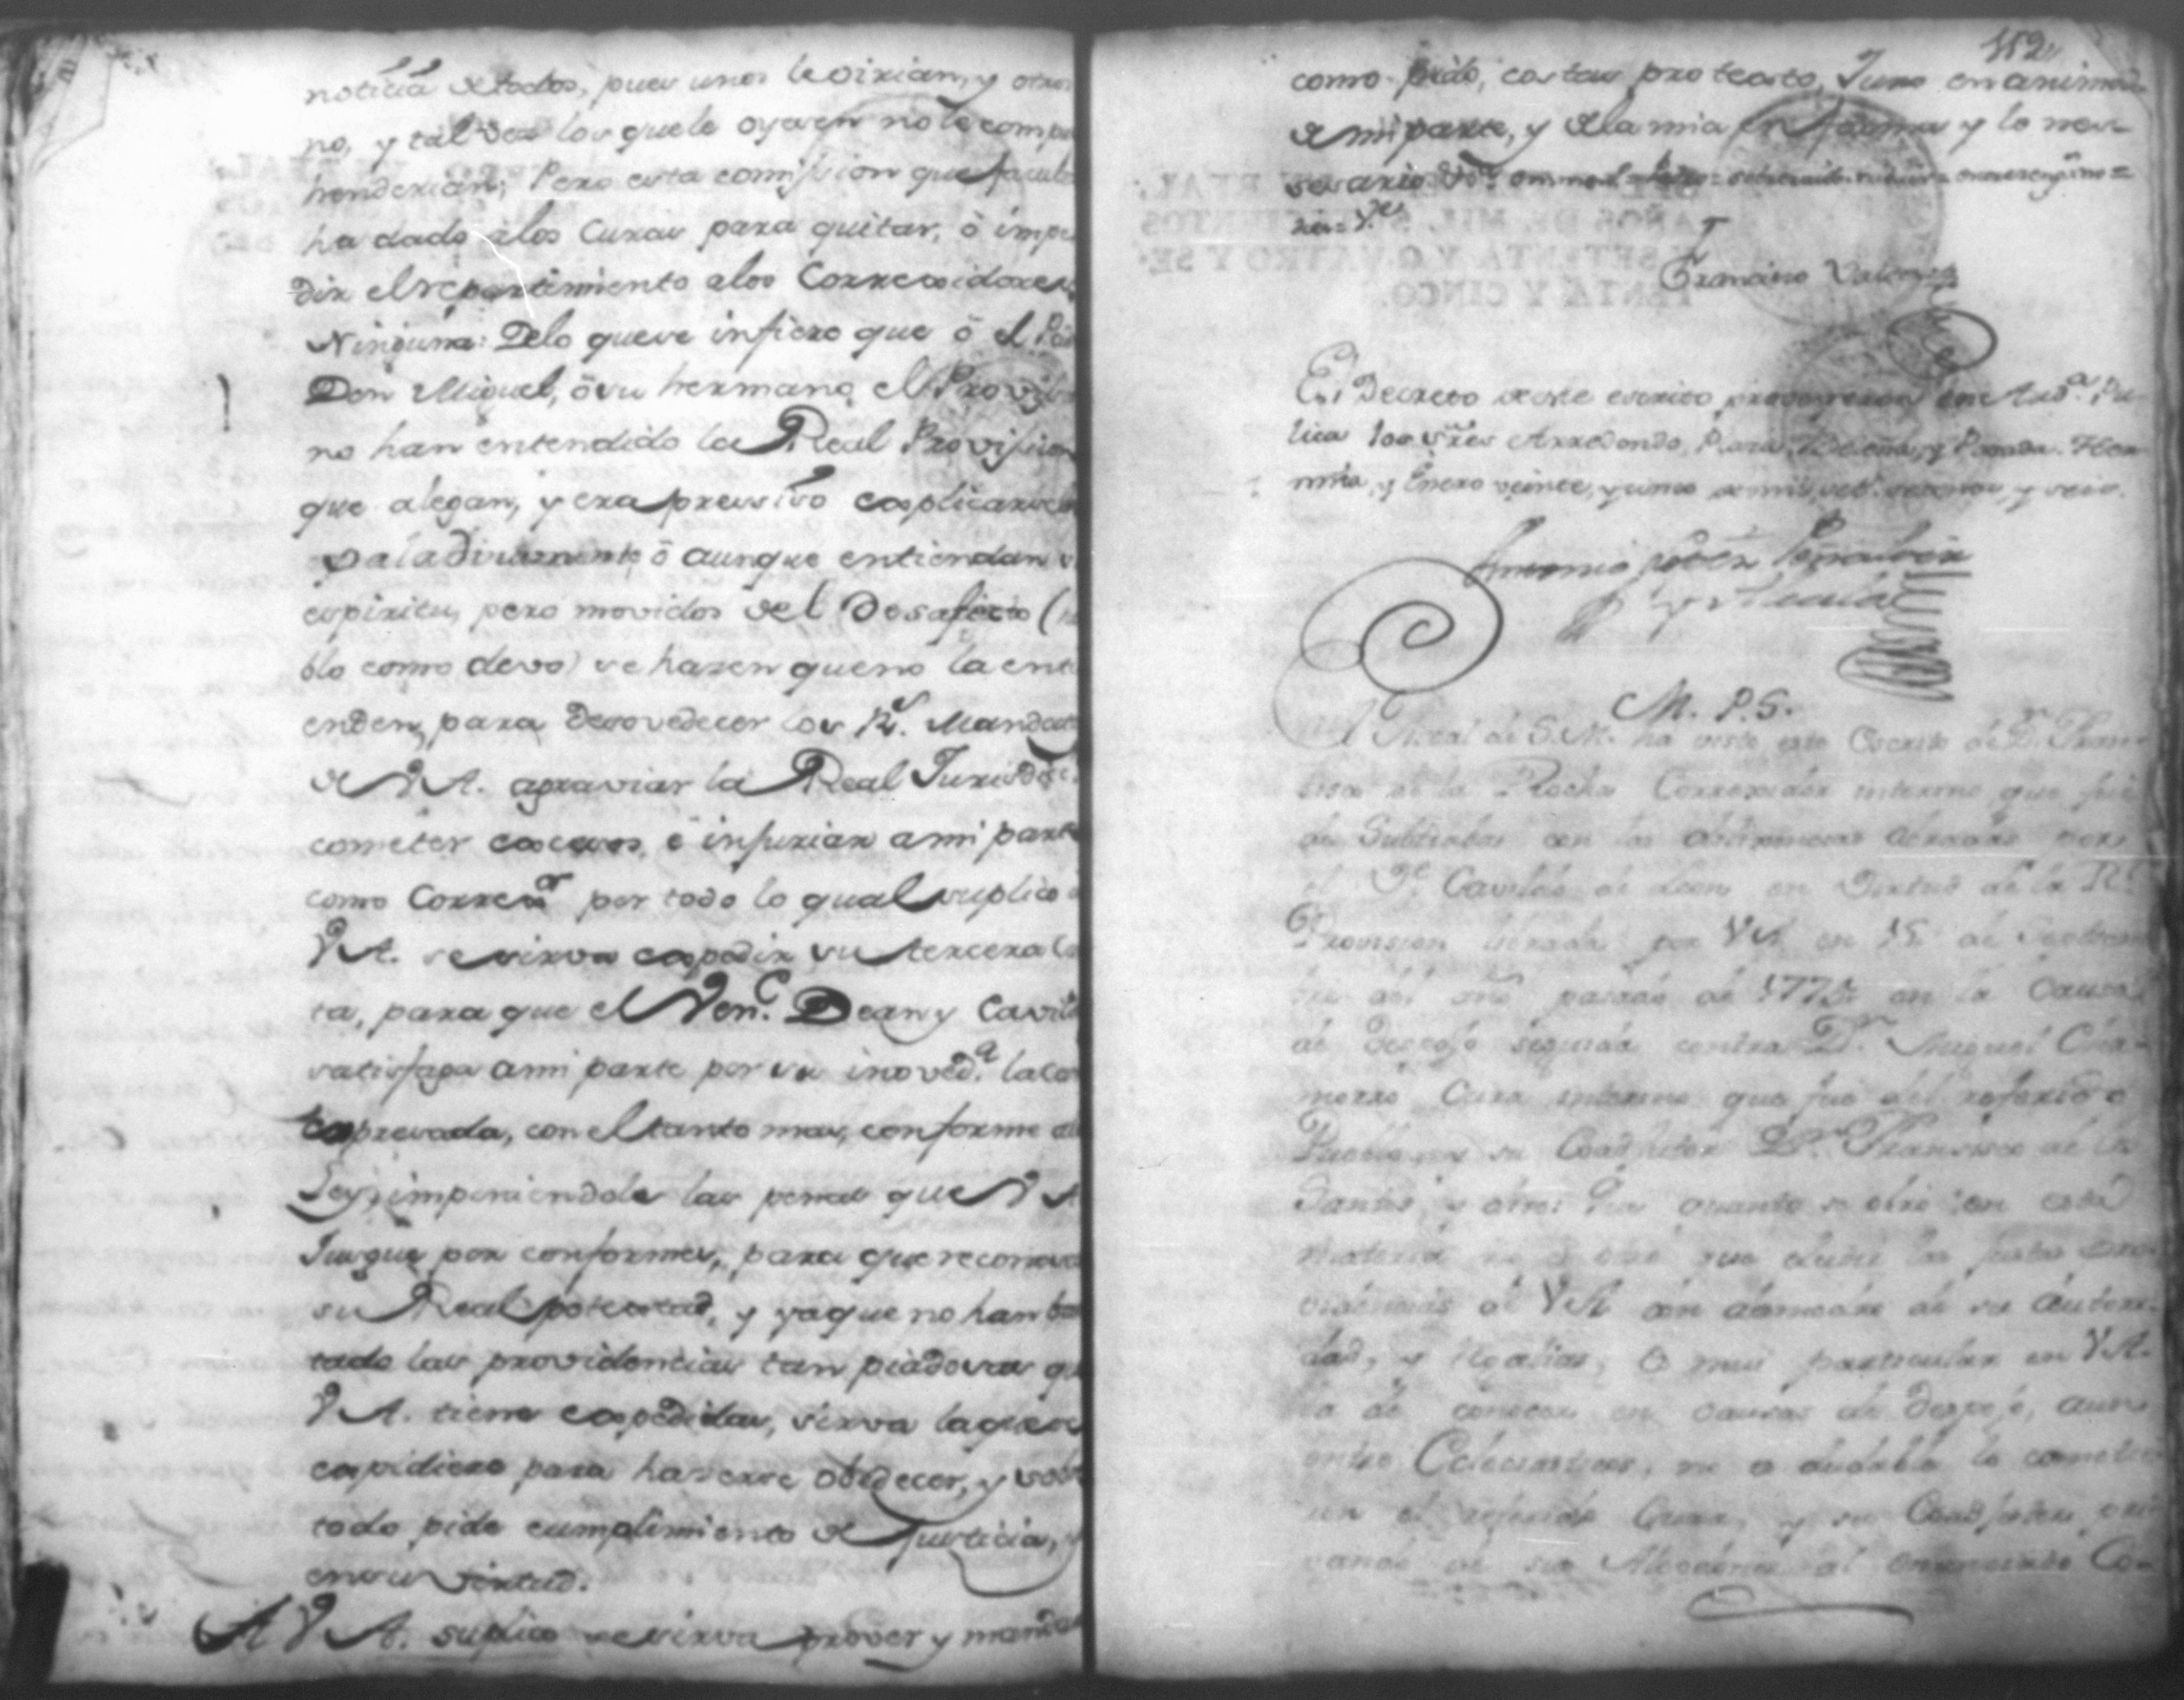 noticia de todos, pues unos le oirian, y otros
no, y tal vez los que le oyesen no le compre
henderian; Pero esta comission que facult
ha dado a los Curas para quitar, ò impe
dir el repartimiento a los Correxidores
Ninguna: De lo que se infiere que ò el Pe
Don Miguel, ò su hermano el Proviso
no han entendido la Real Provision
que alegan, y era presisso explicarsela
paladinamente ò aunque entiendan su
espiritu, pero movidos del Desafecto (ha
blo como devo) se hazen que no la enti
enden, para desovedecer los Rs. Mandat
de V A. agraviar la Real Jurisdic.
cometer excesos, è injuriar a mi parte
como Correxor por todo lo qual suplico a
V A. se sirva expedir su tercera Car
ta, para que el Vene. Dean y Cavild
satisfaga a mi parte por su inoveda. la can
expresada, con el tanto mas, conforme a
Ley, imponiendole las penas que V A
Jusgue por conformes, para que reconosca
su Real potestad, y ya que no han bas
tado las providencias tan piadosas qu
V A. tiene expedidas, sirva la que se
expidiere para haserse obedecer, y sobre
todo pide cumplimiento de justicia, y
en su virtud.
A V A. suplico se sirva prover y mandar
112
como pido, costas protesto, Juro en anima
de mi parte, y de la mia en forma y lo nes-
sesario Vt.
Francisco
El Decreto de este escrito proveyeron en Auda. Pu-
lica los sres Arredondo, Plaza, y Posada. Her-
mita, y Enero veinte, y cinco de mil, set. setenta, y seis.
Antonio Lopez Peñalver
y Alcalá
M. P. S.
El Fiscal de S. M. ha visto este Escrito de Dn. Fran-
sisco de la Rocha Correxidor interino que fue
de Subtiaba con las dilixencias obradas por
el Ve. Cavildo de Leon en Virtud de la Rl.
Provision librada por V A. en 15 de Septiem
bre del año pasado de 1775 en la Causa
de Despojo seguida contra Dn. Miguel Cha-
morro Cura interino que fue del referido
Pueblo, su Coadjutor Dn. Fransisco de los
Santos, y otro: Por quanto se obró en esta
materia no que eludir las justas pro-
videncias de V A con de su autori-
dad, y regalias, O mui particular en V A.
la de conocer en causas de despojo, aun
entre Eclesiasticos, no es dudable lo cometie
ron el referido Cura, y su Coadjutor pri
vando de sus al enunciado Co-